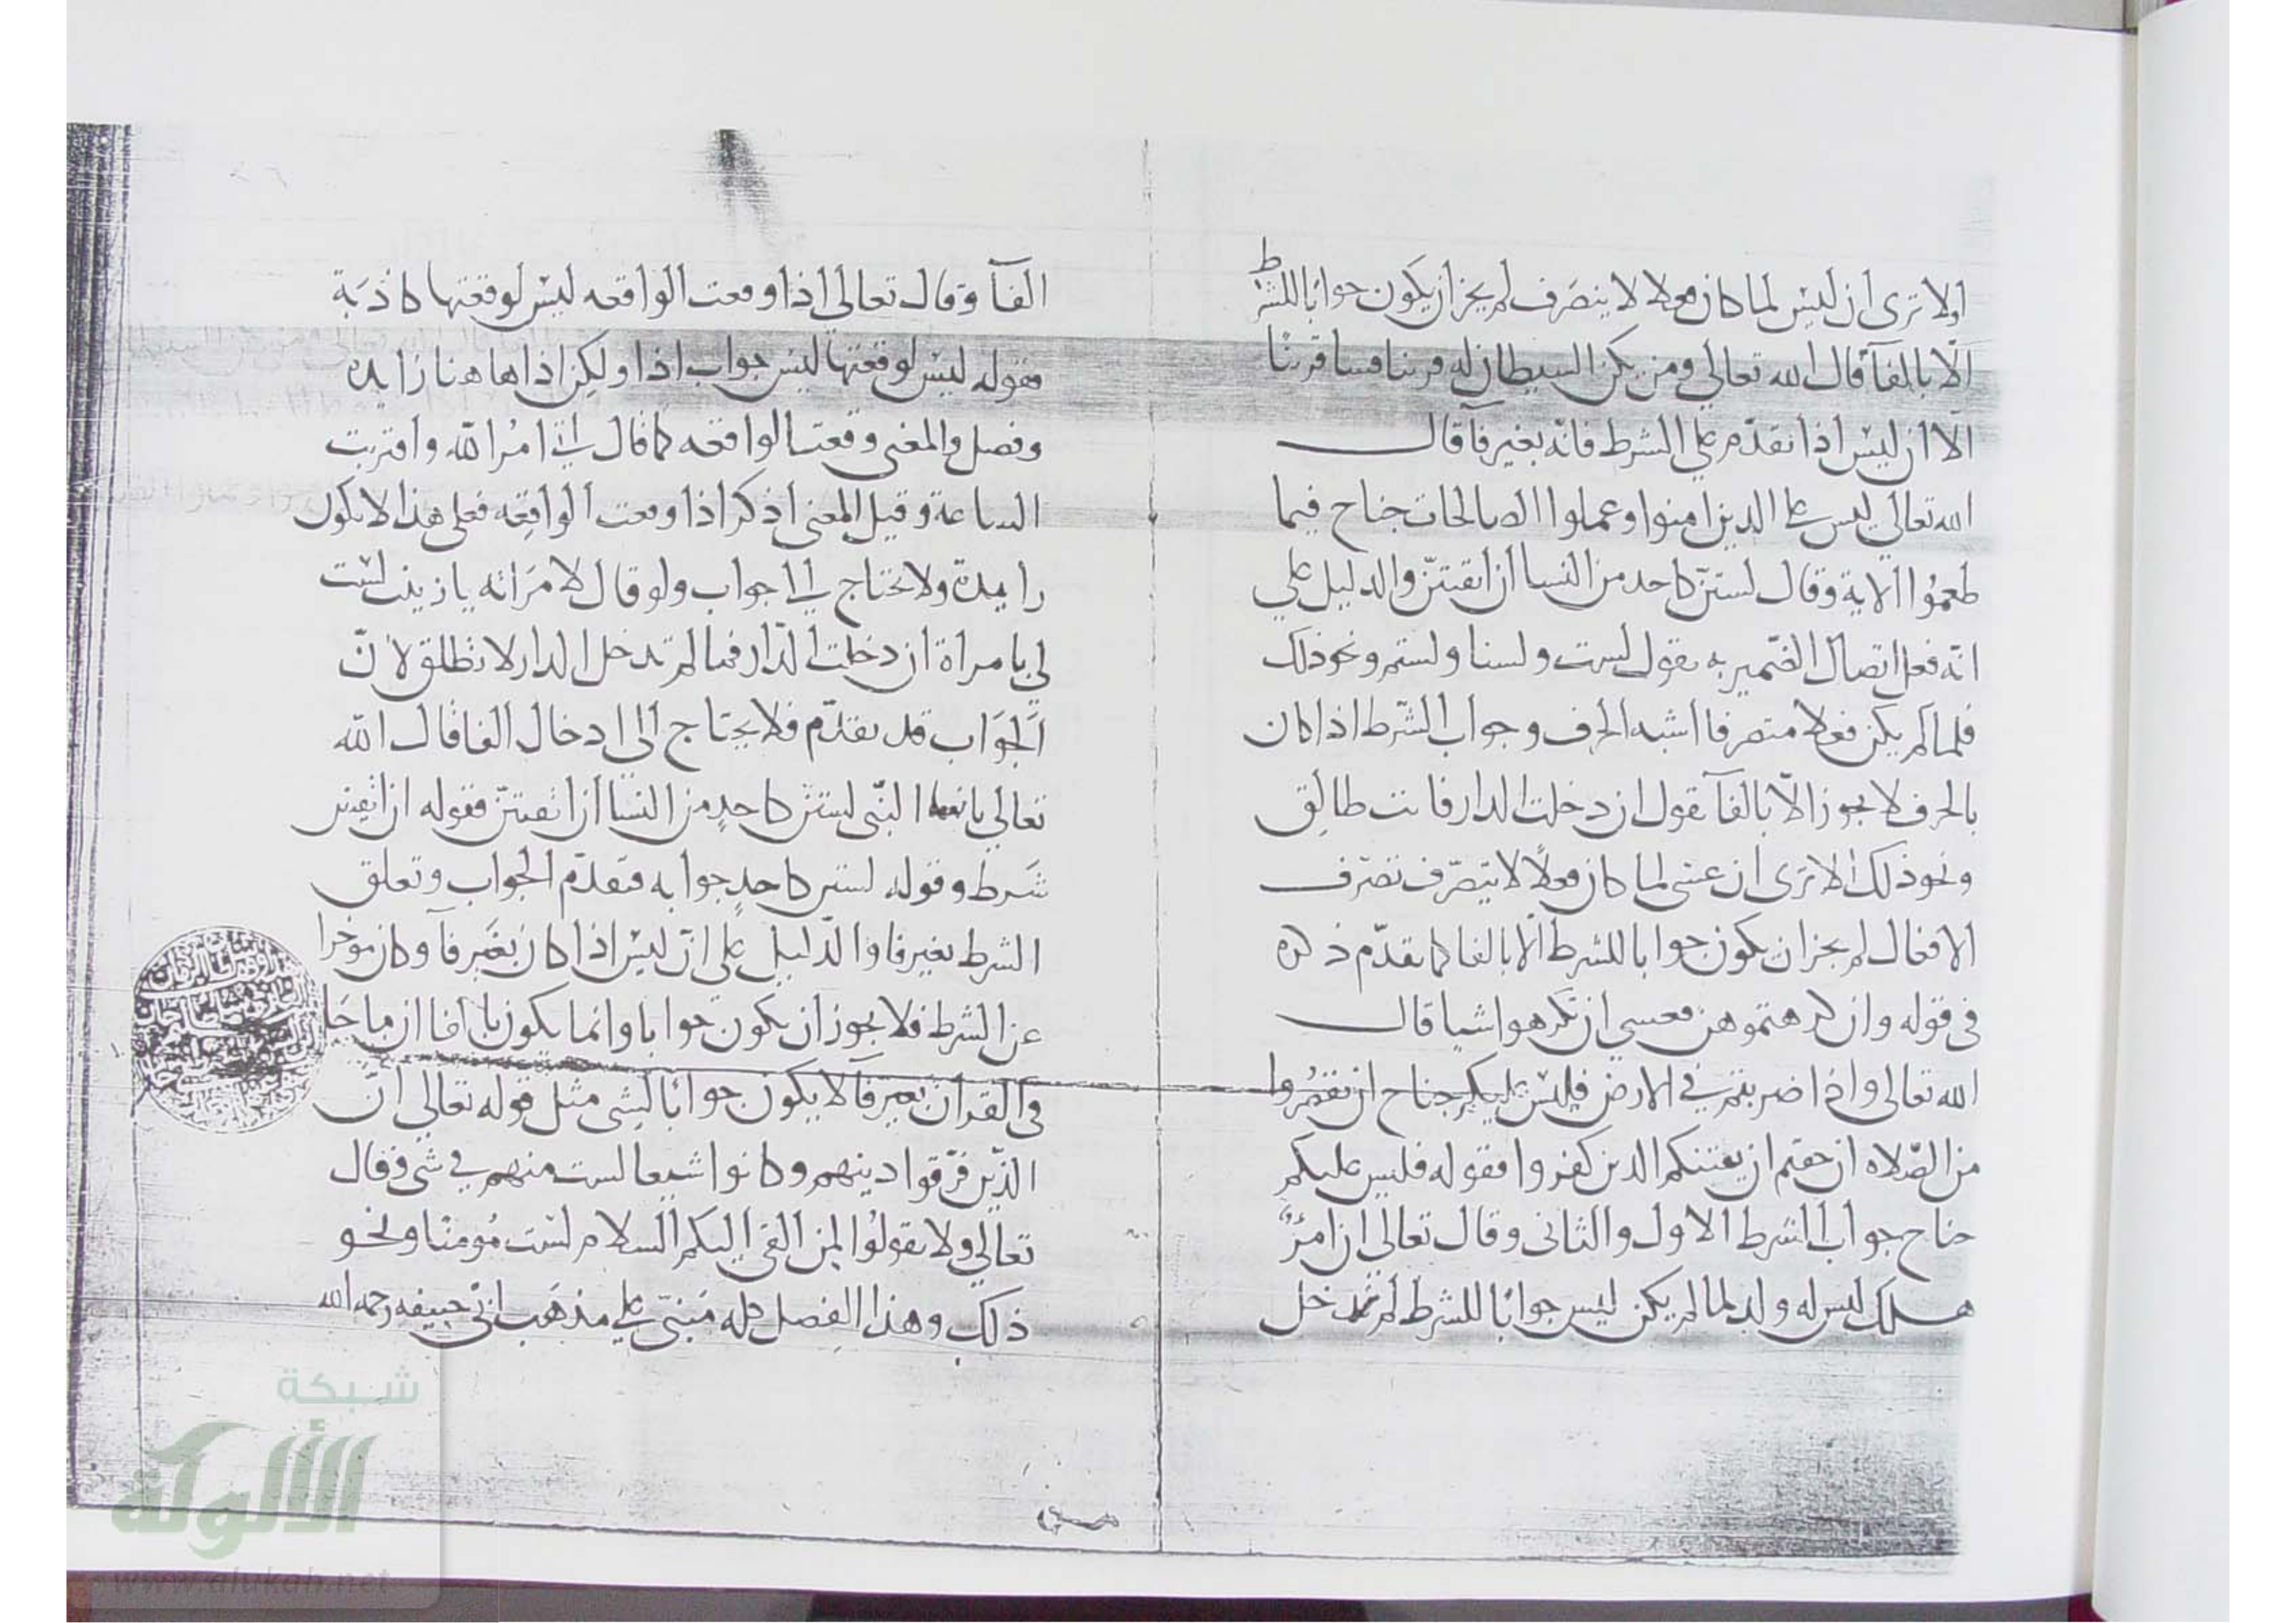 اولا ترى ان ليس لما كان فعلا لا ينصرف لم يجز ان يكون جوابا للشرط
الا بالفآ قال الله تعالى ومن يكن الشيطان له قرينا فسا قرينا
الا ان ليس اذا تقدم على الشرط فانه بغير فآ قال
الله تعالى ليس على الذين امنوا وعملوا الصالحات جناح فيما
طعموا الاية وقال لستن كاحد من النسا ان اتقيتن والدليل على
انه فعل اتصال الضمير به تقول لست ولسنا ولستم ونحو ذلك
فلما لم يكن فعلا متصرفا اشبه الحرف وجواب الشرط اذا كان
بالحرف لا يجوز الا بالفآ تقول ان دخلت الدار فانت طالق
ونحو ذلك الا ترى ان عسى لما كان فعلا لا يتصرف تصرف
الافعال لم يجز ان يكون جوابا للشرط الا بالفا كما تقدم ذكره
فى قوله وان كرهتموهن فعسى ان تكرهوا شيا قال
الله تعالى واذا ضربتم فى الارض فليس عليكم جناح ان تقصروا
من الصلاه ان خفتم ان يفتنكم الذين كفروا فقوله فليس عليكم
جناح جواب الشرط الاول والثانى وقال تعالى ان امرؤ
هلك ليس له ولد لما لم يكن ليس جوابا للشرط لم تدخل
الفآ وقال تعالى اذا وقعت الواقعه ليس لوقعتها كاذبة
فقوله ليس لوقعتها ليس جواب اذا ولكن اذا هاهنا زايده
وفصل والمعنى وقعت الواقعه كما قال اتى امر الله واقتربت
الساعة وقيل المعنى اذكر اذا وقعت الواقعه فعلى هذا لا يكون
زايدة ولا تحتاج الى جواب ولو قال لامراته يا زينب لست
لى بامراة ان دخلت الدار فما لم تدخل الدار لا تطلق لان
الجواب قد تقدم فلا يحتاج الى ادخال الفا قال الله
تعالى يا نسا النبى لستن كاحد من النسا ان اتقيتن فقوله ان اتقيتن
شرط وقوله لستن كاحد جوابه فتقدم الجواب وتعلق
الشرط بغير فا والدليل على ان ليس اذا كان بغير فآ وكان موخرا
عن الشرط فلا يجوز ان يكون جوابا وانما يكون بالفا ان ما جا
فى القران بغير فآ لا يكون جوابا لشى مثل قوله تعالى ان
الذين فرقوا دينهم وكانوا شيعا لست منهم فى شى وقال
تعالى ولا تقولوا لمن القى اليكم السلام لست مومنا ونحو
ذلك وهذا الفصل كله مبنى على مذهب ابى حنيفه رحمه الله
شبكة
الألوكة
www.alukah.net